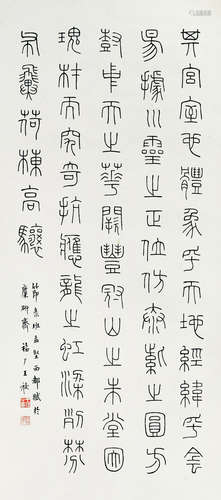 其宮室也體象乎天地經緯乎侌
昜據川靈之正位仿泰紫之圓方
尌中天之華闕豐冠山之朱堂因
瑰材而究奇抗應龍之虹梁列棼
布翼荷棟高驤
節錄班孟堅西都賦於
麋研齋福厂王禔